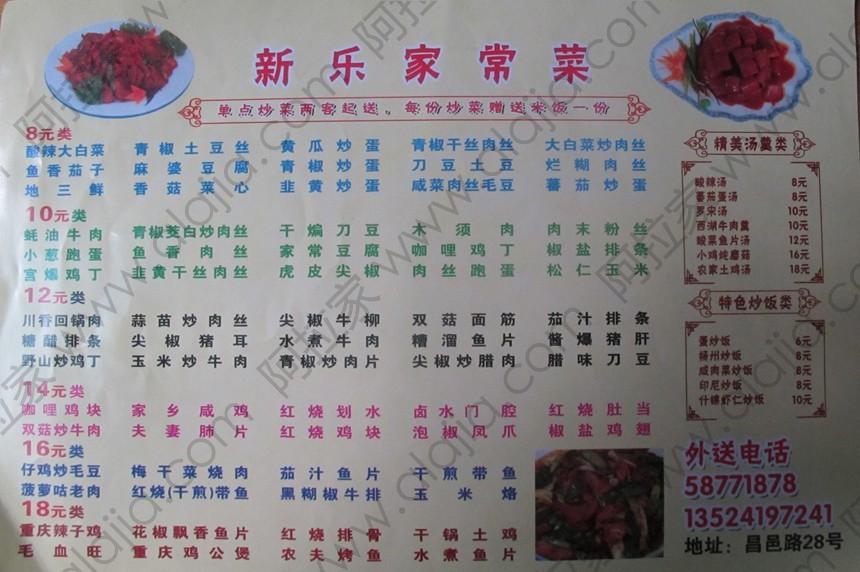 新乐家常菜
单点炒菜两客起送。每份炒菜赠送米饭一份
8元类
酸辣大白菜 青椒土豆丝 黄瓜炒蛋 青椒干丝肉丝 大白菜炒肉丝
鱼香茄子 麻婆豆腐 青椒炒蛋 刀豆土豆 烂糊肉丝
地三鲜 香菇菜心 韭黄炒蛋 咸菜肉丝毛豆 蕃茄炒蛋
10元类
蚝油牛肉 青椒茭白炒肉丝 干煸刀豆 木须肉 肉末粉丝
小葱跑蛋 鱼香肉丝 家常豆腐 咖哩鸡丁 椒盐排条
宫爆鸡丁 韭黄干丝肉丝 虎皮尖椒 肉丝跑蛋 松仁玉米
12元类
川香回锅肉 蒜苗炒肉丝 尖椒牛柳 双菇面筋 茄汁排条
糖醋排条 尖椒猪耳 水煮牛肉 糟溜鱼片 酱爆猪肝
野山炒鸡丁 玉米炒牛肉 青椒炒肉片 尖椒炒腊肉 腊味刀豆
14元类
咖哩鸡块 家乡咸鸡 红烧划水 卤水门腔 红烧肚当
双菇炒牛肉 夫妻肺片 红烧鸡块 泡椒凤爪 椒盐鸡翅
16元类
仔鸡炒毛豆 梅干菜烧肉 茄汁鱼片 干煎带鱼
菠萝咕老肉 红烧(干煎)带鱼 黑糊椒牛排 玉米烙
18元类
重庆辣子鸡 花椒飘香鱼片 红烧排骨 干锅土鸡
毛血旺 重庆鸡公煲 农夫烤鱼 水煮鱼片
精美汤羹类
酸辣汤 8元
蕃茄蛋汤 8元
罗宋汤 10元
西湖牛肉羹 10元
酸菜鱼片汤 12元
小鸡炖蘑菇 16元
农家土鸡汤 18元
特色炒饭类
蛋炒饭 6元
扬州炒饭 8元
咸肉菜炒饭 8元
印尼炒饭 8元
什锦虾仁炒饭 10元
外送电话
58771878
13524197241
地址：昌邑路28号
阿拉家 www.alajia.com